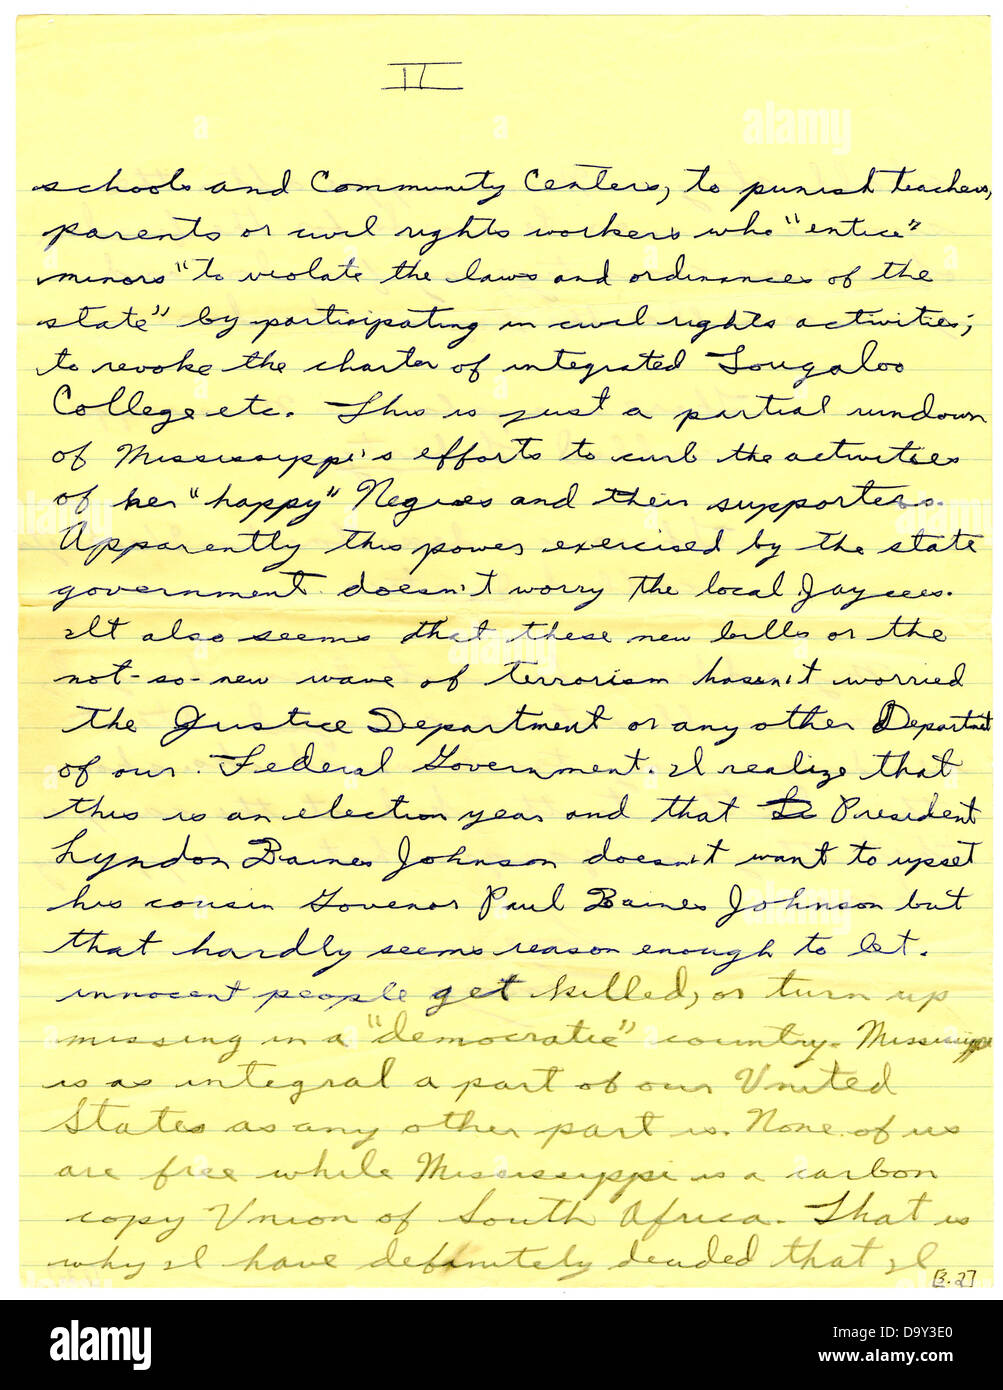 II
schools and Community Centers, to punish teachers,
parents or civil rights workers who "entice"
minors "to violate the laws and ordinances of the
state" by participating in civil rights activities;
to revoke the charter of integrated Tougaloo
College etc. This is just a partial rundown
of Mississippi's efforts to curb the activities
of her "happy" Negroes and their supporters.
Apparently this power exercised by the state
government doesn't worry the local Jaycees.
It also seems that these new bills or the
not-so-new wave of terrorism hasn't worried
the Justice Department or any other Department
of our Federal Government. I realize that
this is an election year and that President
Lyndon Baines Johnson doesn't want to upset
his cousin Govenor Paul Baines Johnson but
that hardly seems reason enough to let
innocent people get killed, or turn up
missing in a "democratic" country. Mississippi
is as integral a part of our United
States as any other part is. None of us
are free while Mississippi is a carbon
copy Union of South Africa. That is
why I have definitely decided that I
[3.2]
alamy
Image ID: D9Y3E0
www.alamy.com